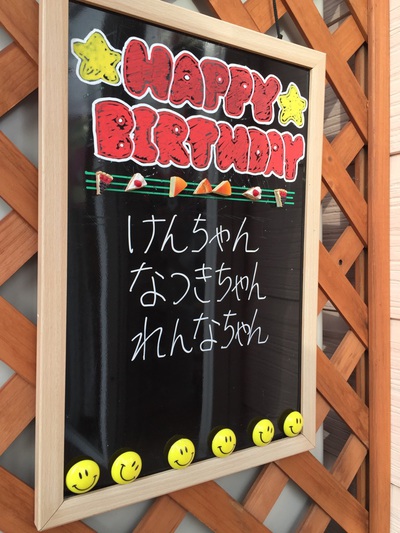 HAPPY
BIRTHDAY
けんちゃん
なつきちゃん
れんなちゃん